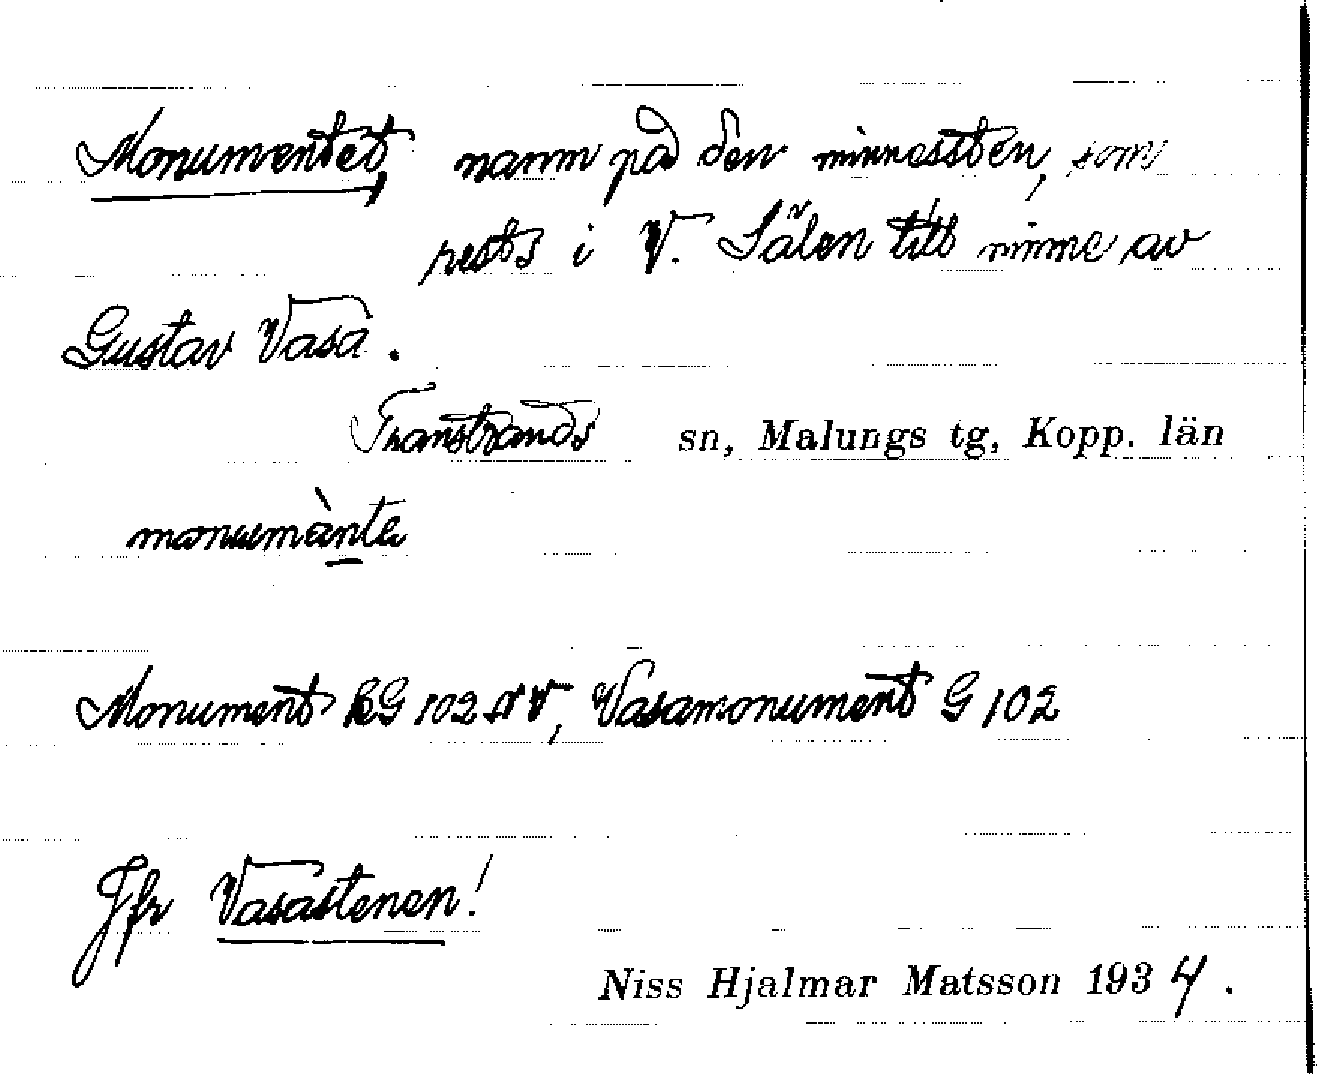 Monumentet, namn på den minnessten, som
rests i V. Sälen till minne av
Gustav Vasa.
Transtrands sn, Malungs tg, Kopp. län
monumànte
Monument RG 102 NV, Vasamonument G 102
Jfr Vasastenen!
Niss Hjalmar Matsson 1934.